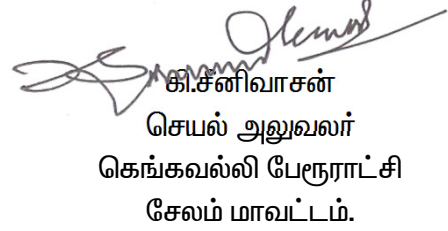 கி.சீனிவாசன்
செயல் அலுவலர்
கெங்கவல்லி பேரூராட்சி
சேலம் மாவட்டம்.